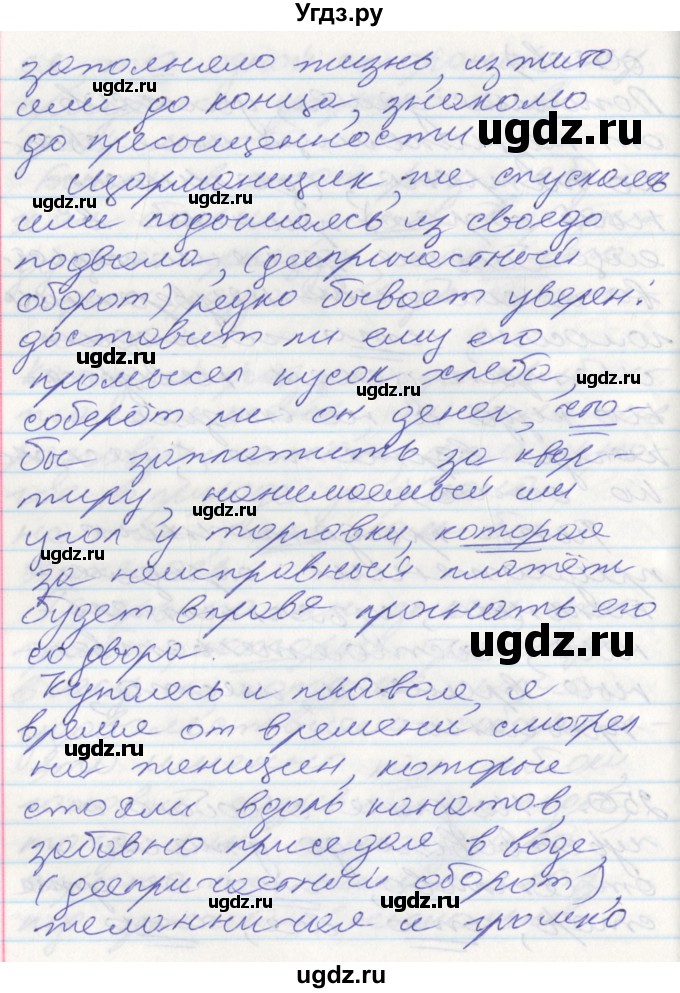 Угдз.ру
заполняло жизнь, изжито
или до конца, знакомо
до пресыщенности.
ugdz.ru
Шарманщик, не спускаясь
ugdz.ru
ugdz.ru
или поднимаясь из своего
подвала, (деепричастный
ugdz.ru
оборот) редко бывает уверен:
доставит ли ему его
ugdz.ru
промысел кусок хлеба,
ugdz.ru
соберёт ли он денег, что-
бы заплатить за квар-
тиру, нанимаемый им
ugdz.ru
угол у торговки, которая
за неисправный платёж
будет вправе прогнать его
со двора.
ugdz.ru
Купаясь и плавая, я
время от времени смотрел
ugdz.ru
на женщин, которые
стояли вдоль канатов,
забавно приседая в воде,
ugdz.ru
(деепричастный оборот),
ugdz.ru
жеманничая и громко
ugdz.ru